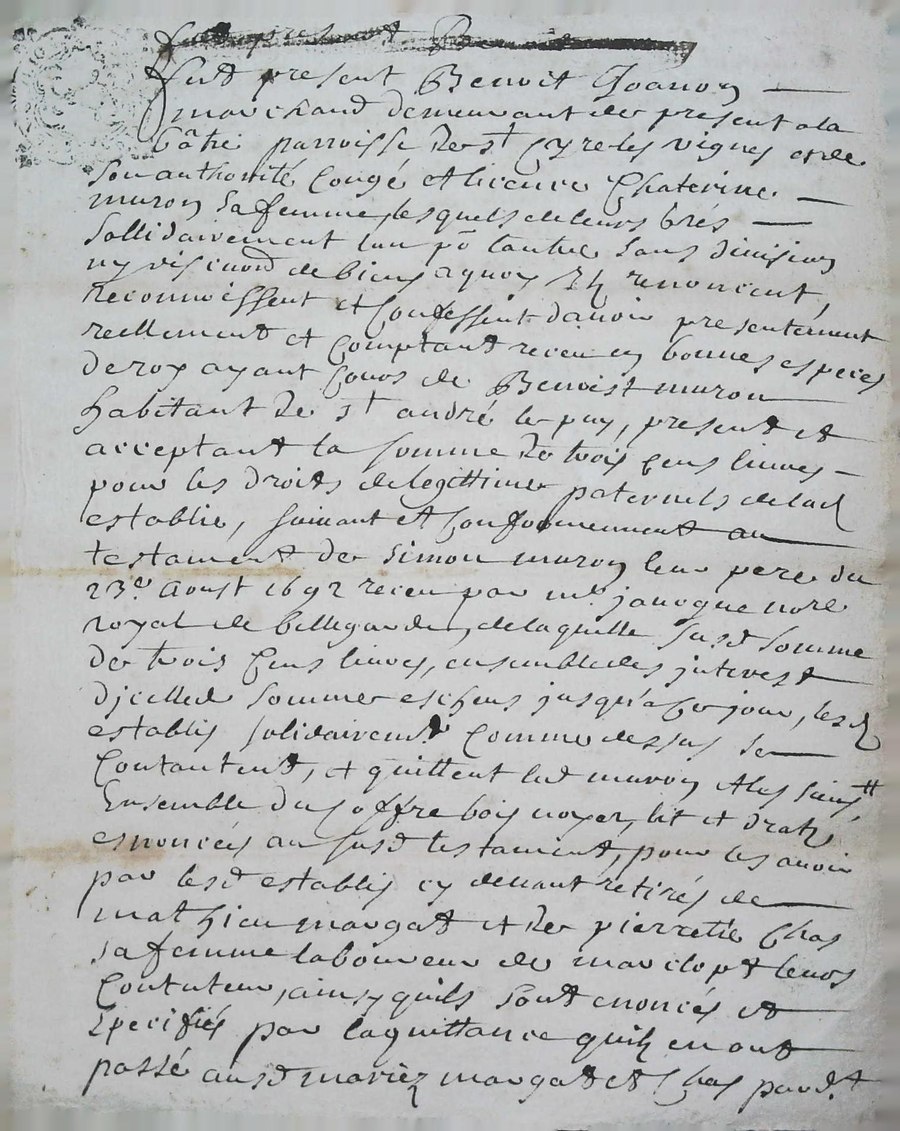 fut present Benoit Joanon
marchand demeurant de present a la
bâtie parroisse de st Cyre les vignes et de
son authorité Congé et licence Chaterine
muron sa femme, lesquels de leurs grés
sollidairement lun pō lautre sans division
ny discuōn de biens a quoy ilz renoncent,
reconnoissent et Confessent d'avoir presentement
reellement et Comptant receu en bonnes especes
de roy ayant Cours de Benoist muron
habitant de st andré le puy, present et
acceptant la somme de trois Cens livres
pour les droits de legittime paternels de lad
establie, suivant et Conformement au
testament de simon muron leur pere du
23e. aoust 1692 receu par me. janogue nore
royal de bellegarde, de laquelle susd somme
de trois Cens livres, ensemble des interest
d'jcelled somme eschens jusqu'a Ce jour, lesd
establis solidairemt Comme dessus se
Contantent, et quittent led muron et les siens,
Ensemble du Coffre bois noyer, lit et draps
enoncés au susd testament, pour les avoir
par lesd establis cy devant retirés de
mathieu margat et de pierrette Chas
sa femme laboureur de marclopt leurs
Contuteur, ainsy quils sont enoncés et
specifiés par la quittance quilz en ont
passé ausd mariez margat et Chas pard.t